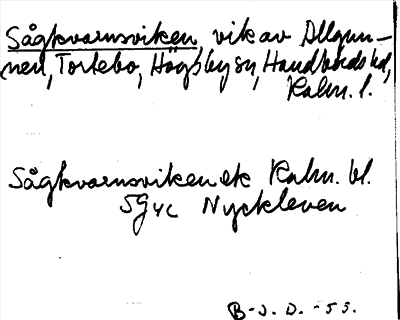 Sågkvarnsviken, vik av Allgun-
nen, Tortebo, Högsby sn, Handbörds hd,
Kalm. l.
Sågkvarnsviken ek Kalm. bl.
5G4c Nyckleven
B-J. D. -55.